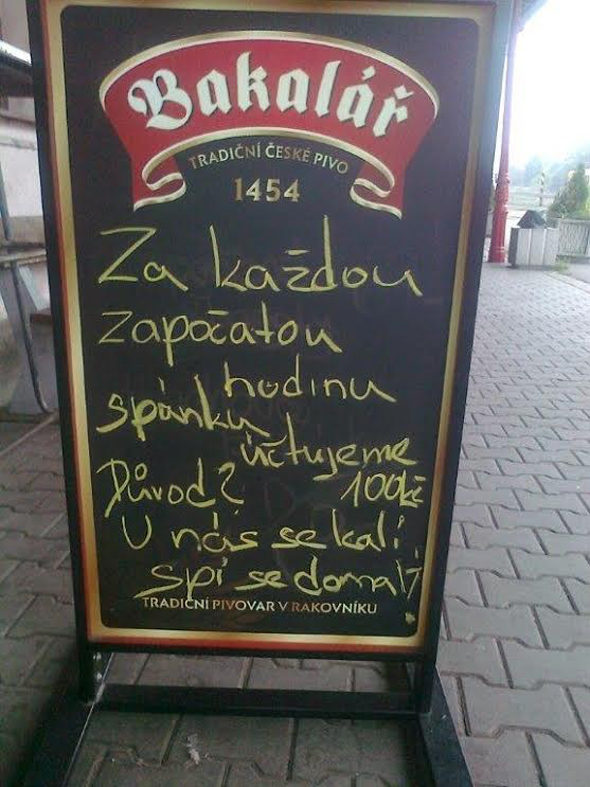 Bakalář
TRADIČNÍ ČESKÉ PIVO
1454
Za každou
započatou
hodinu
spánku
účtujeme
Důvod? 100Kč
U nás se kalí,
spí se doma!?
TRADIČNÍ PIVOVAR V RAKOVNÍKU